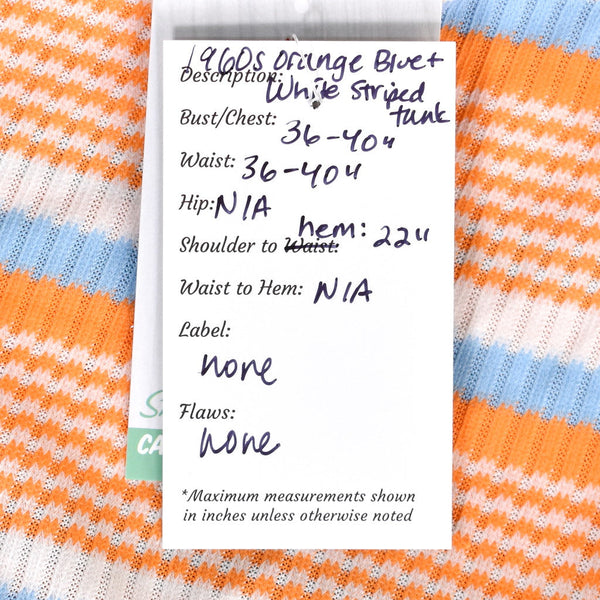 1960s Orange Blue +
Description:
White Striped
tank
Bust/Chest: 36-40"
Waist: 36-40"
Hip: N/A
hem: 22"
Shoulder to Waist:
Waist to Hem: N/A
Label:
none
Flaws:
none
*Maximum measurements shown
in inches unless otherwise noted
CA